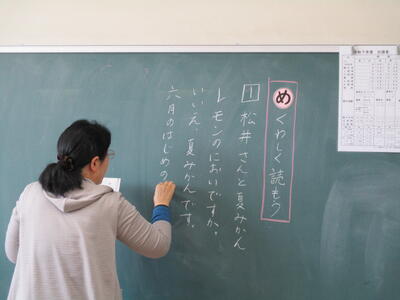 め くわしく読もう
1 松井さんと夏みかん
レモンのにおいですか。
いいえ、夏みかんです。
六月のはじめの